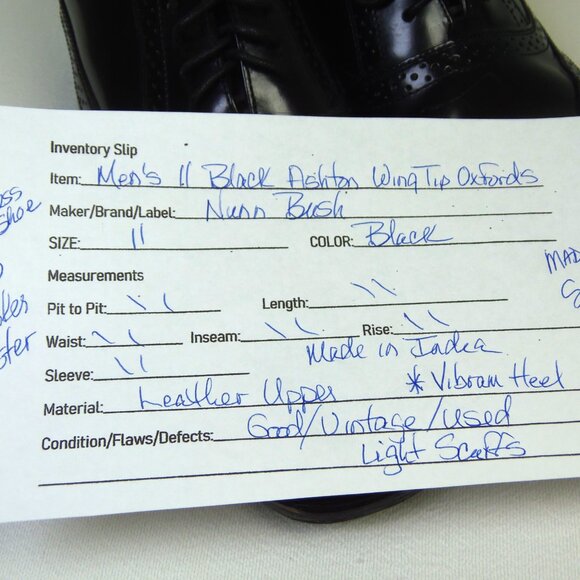 Inventory Slip
Item: Men's 11 Black Ashton Wing Tip Oxfords
Maker/Brand/Label: Nunn Bush
SIZE: 11 COLOR: Black
Measurements
Pit to Pit: \ \ Length: \ \
Waist: \ \ Inseam: \ \ Rise: \ \
Sleeve: \ \ Made in India
Material: Leather Upper * Vibram Heel
Condition/Flaws/Defects: Good/Vintage/Used
Light Scuffs
shoe
MAD